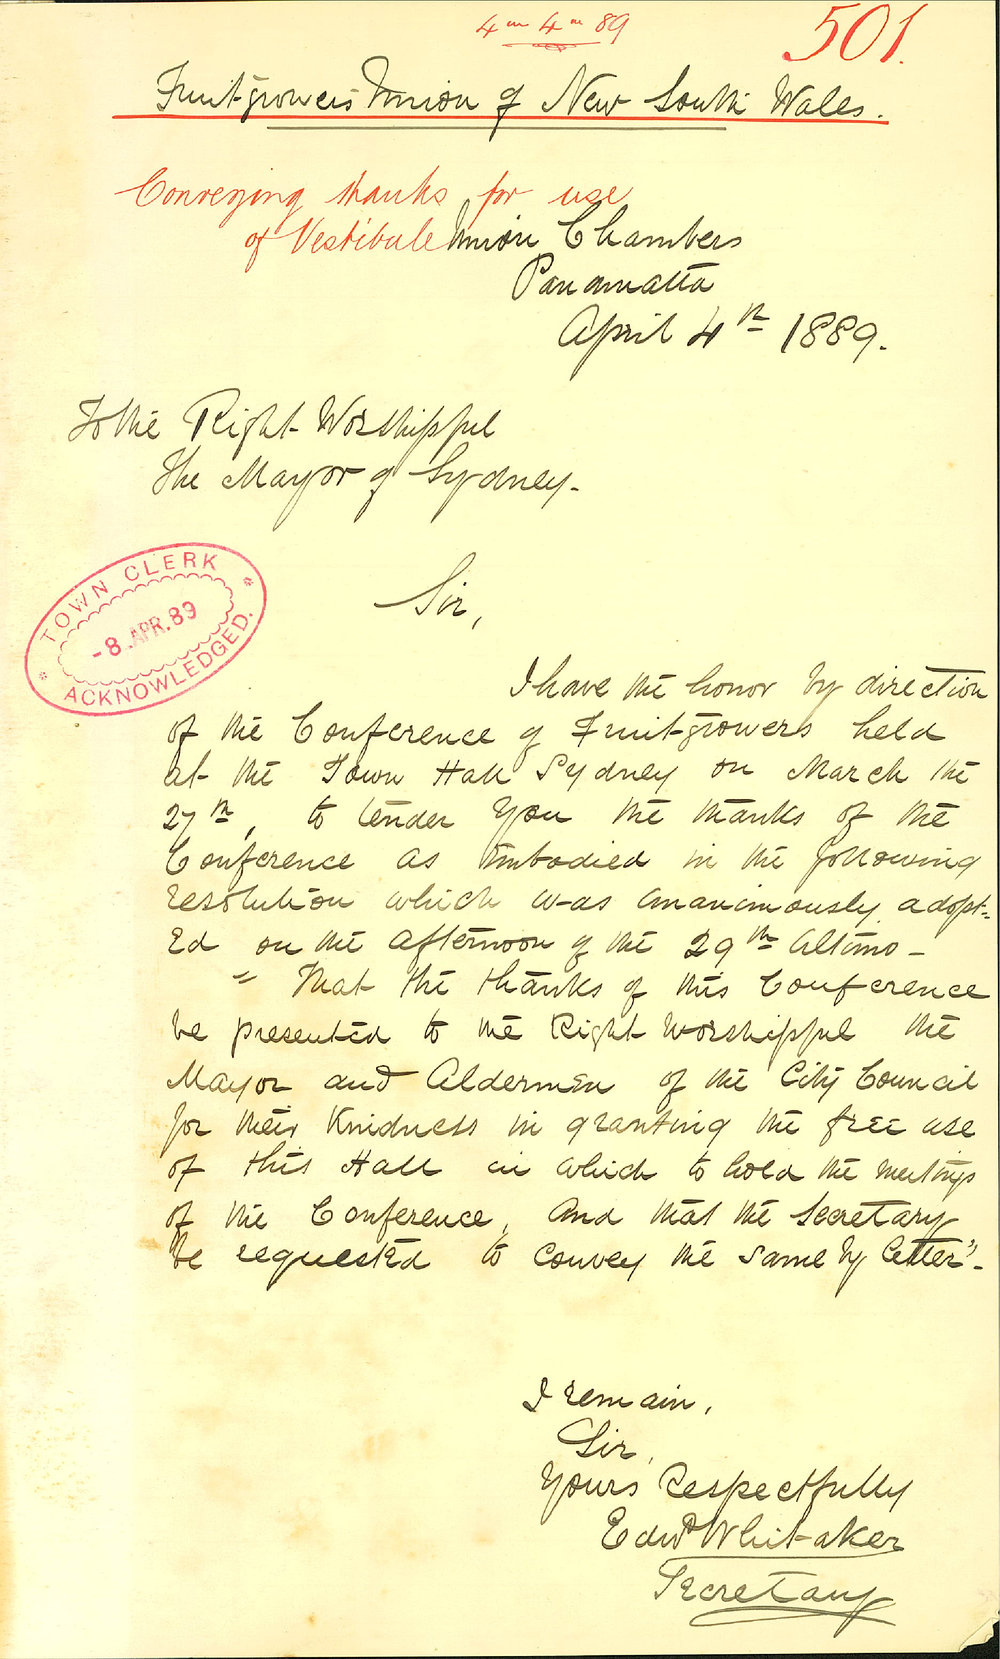 4 4 89
501.
Fruitgrowers Union of New South Wales.
Conveying thanks for use
of Vestibule
Union Chambers
Parramatta
April 4th 1889.
To the Right Worshipful
The Mayor of Sydney.
TOWN CLERK
-8.APR.89
ACKNOWLEDGED.
Sir,
I have the honor by direction
of the Conference of Fruitgrowers held
at the Town Hall Sydney on March the
27th, to tender you the thanks of the
Conference as embodied in the following
resolution which was unanimously adopt=
ed on the afternoon of the 29th Ultimo -
" That the thanks of this Conference
be presented to the Right Worshipful the
Mayor and Aldermen of the City Council
for their Kindness in granting the free use
of this Hall in which to hold the meetings
of the Conference, and that the Secretary
be requested to convey the same by letter" -
I remain,
Sir,
Yours Respectfully
Edwd Whitaker
Secretary